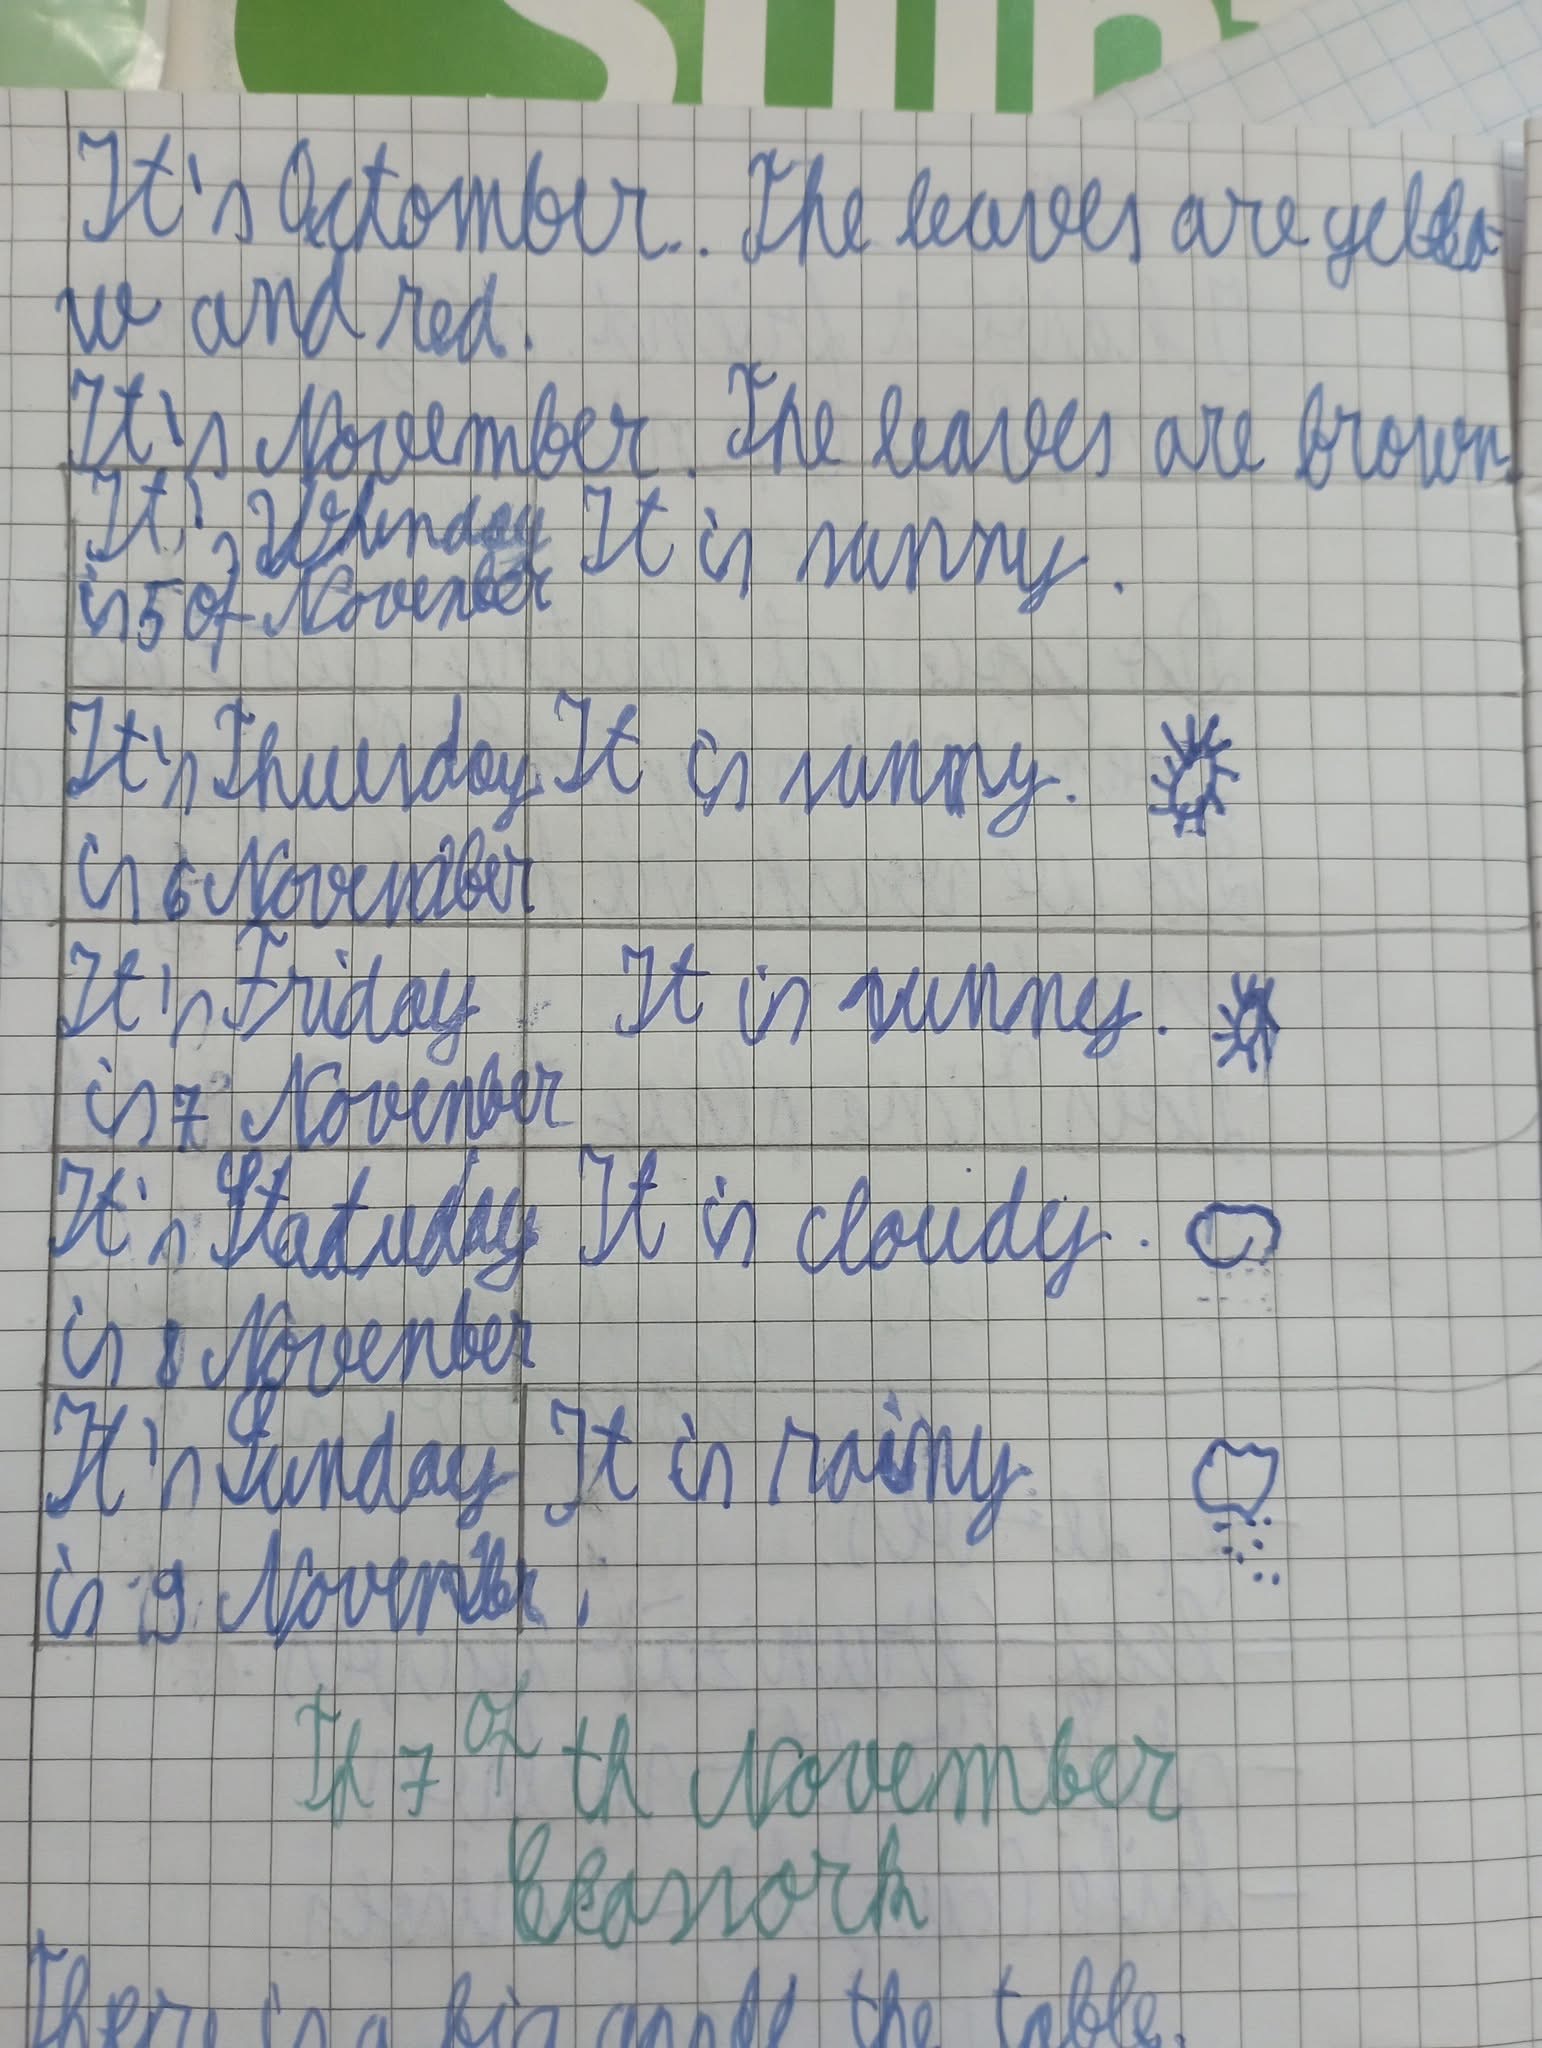 It's Octomber. The leaves are yello-
w and red.
It's November. The leaves are brown.
It's It is sunny.
is 5 of November
It's Thursday It is sunny.
is 6 November
It's Friday It is sunny.
is 7 November
It's Statuday It is cloudy.
is 8 November
It's Sunday It is rainy
is 9 November.
Th 7 of th November
There is a the table.